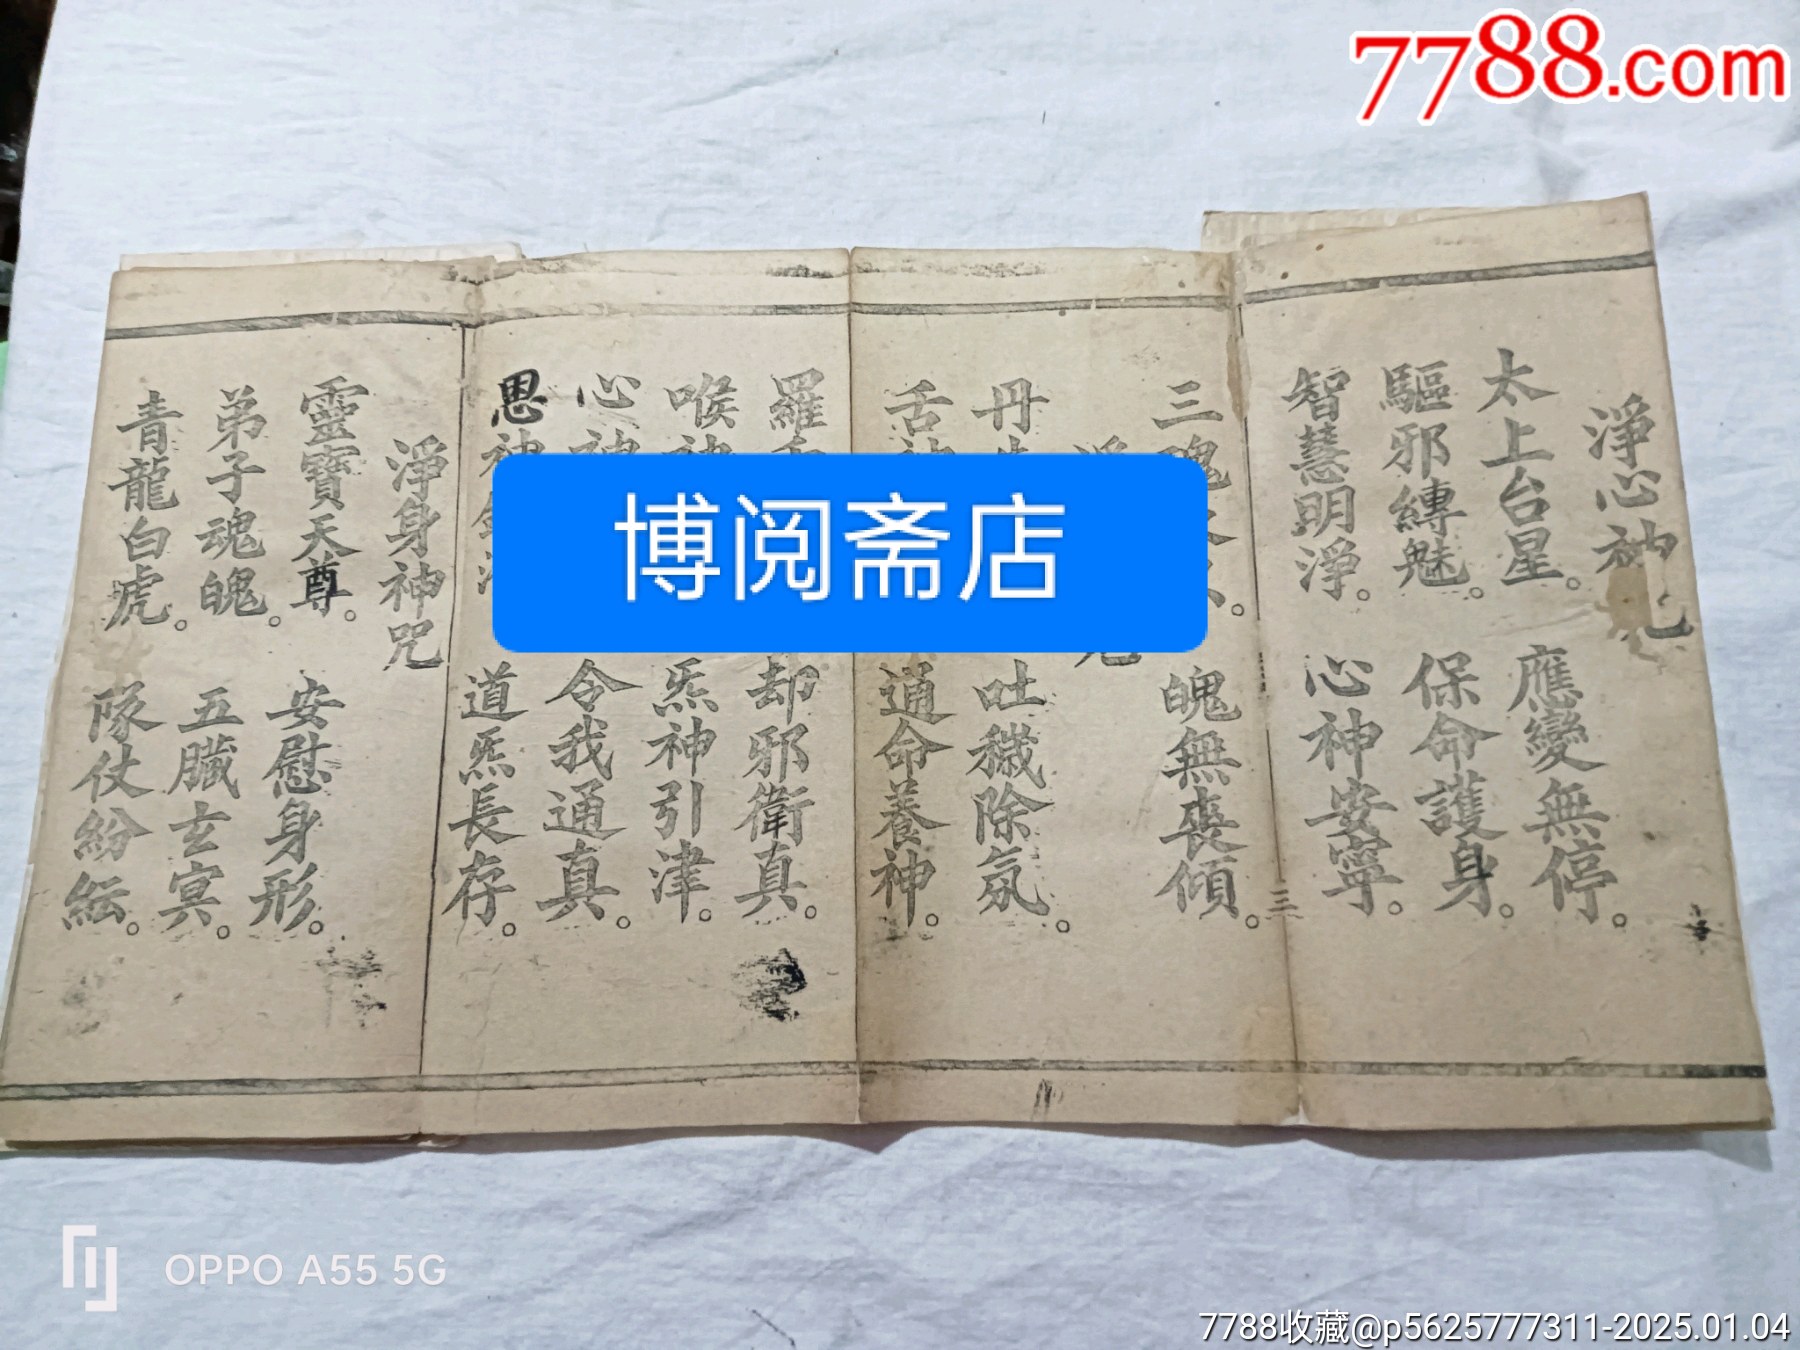 7788.com
淨心神咒
太上台星。應變無停。
驅邪縛魅。保命護身。
智慧明淨。心神安寧。
三
三魂永久。魄無喪傾。
丹 吐穢除氛。
舌神 通命養神。
羅 却邪衛真。
喉神 炁神引津。
心神 令我通真。
思神 道炁長存。
淨身神咒
靈寶天尊。安慰身形。
弟子魂魄。五臟玄冥。
青龍白虎。隊仗紛紜。
博阅斋店
OPPO A55 5G
7788收藏@p5625777311-2025.01.04